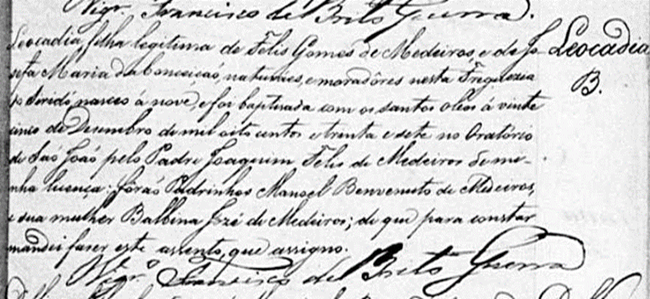 Vigrº Francisco de Brito Guerra.
Leocadia, filha legitima de Felis Gomes de Medeiros, e de Jo
sefa Maria da Conceicaõ, naturaes, e moradores nesta Freguesia
do Seridó, nasceo á nove, e foi baptisada com os santos oleos á vinte
cinco de Desembro de mil oito centos e trenta e sete no Oratório
de Saõ Joaõ pelo Padre Joaquim Felis de Medeiros de mi-
nha licença: foraõ Padrinhos Manoel Benvenuto de Medeiros,
e sua mulher Balbina José de Medeiros; de que para constar
mandei faser este assento, que assigno.
Vigrº Francisco de Brito Guerra
Leocadia
B.